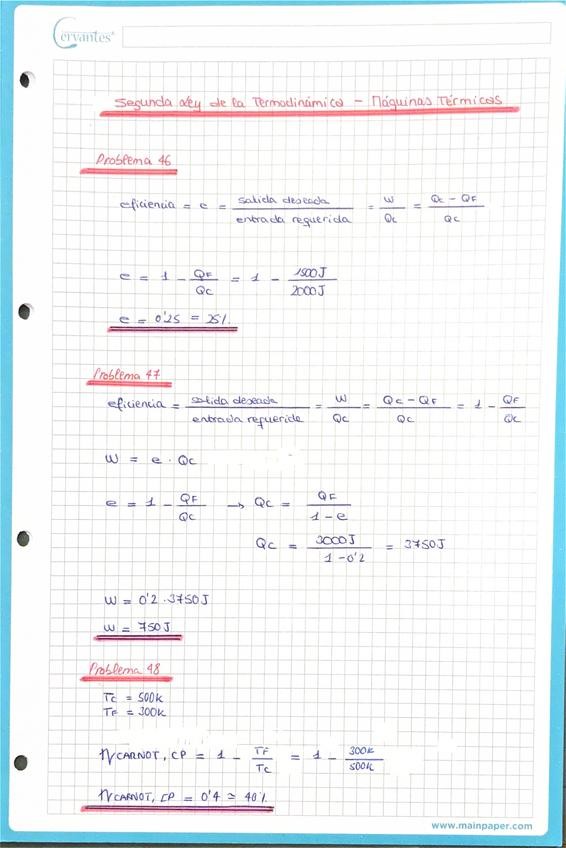 Cervantes®
Segunda Ley de la Termodinámica - Máquinas Térmicas
Problema 46
eficiencia = e = salida deseada / entrada requerida = W / Qc = Qc - QF / Qc
e = 1 - QF / Qc = 1 - 1500J / 2000J
e = 0'25 = 25%.
Problema 47
eficiencia = salida deseada / entrada requerida = W / Qc = Qc - QF / Qc = 1 - QF / Qc
W = e · Qc
e = 1 - QF / Qc → Qc = QF / 1 - e
Qc = 3000J / 1 - 0'2 = 3750J
W = 0'2 · 3750J
W = 750J
Problema 48
Tc = 500K
TF = 300K
ηCARNOT, CP = 1 - TF / Tc = 1 - 300K / 500K
ηCARNOT, CP = 0'4 ≃ 40%
www.mainpaper.com